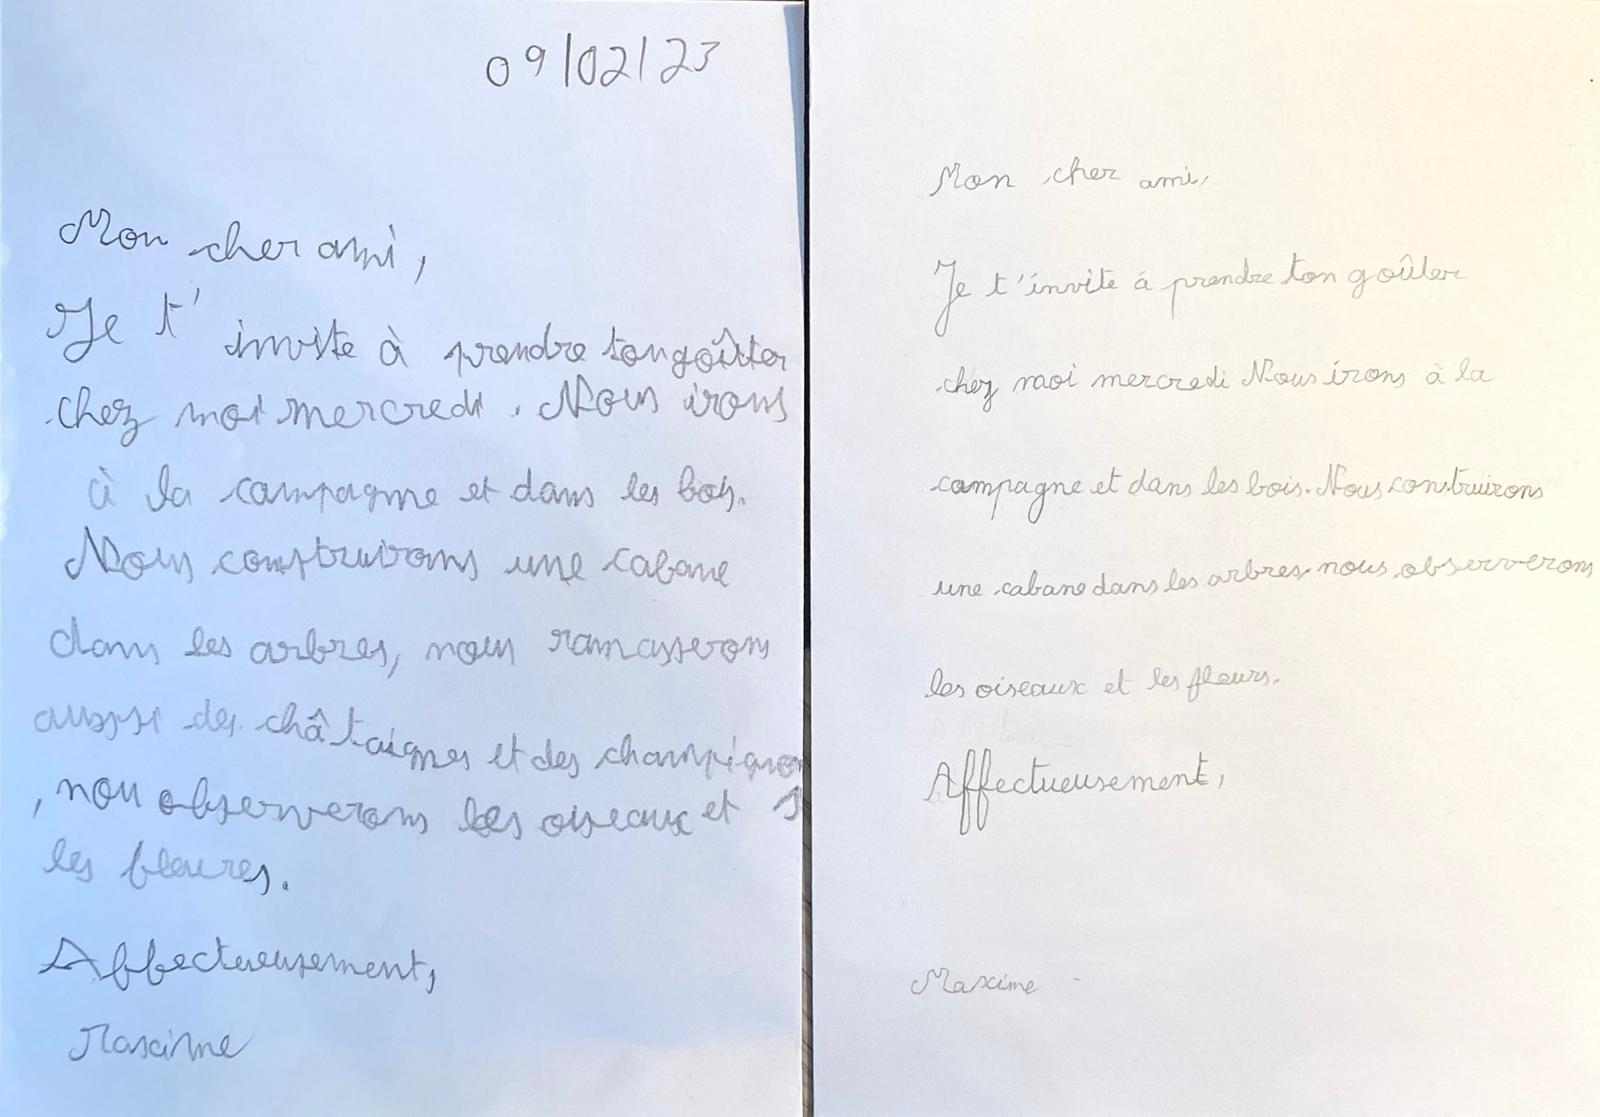 09/02/23
Mon cher ami,
Je t'invite à prendre ton goûter
chez moi mercredi. Nous irons
à la campagne et dans les bois.
Nous construirons une cabane
dans les arbres, nous ramasserons
aussi des châtaignes et des champignon
, nou observerons les oiseaux et
les fleures.
Affectueusement,
Maxime
Mon cher ami,
Je t'invite à prendre ton goûter
chez moi mercredi Nous irons à la
campagne et dans les bois. Nous construirons
une cabane dans les arbres nous observerons
les oiseaux et les fleurs.
Affectueusement,
Maxime